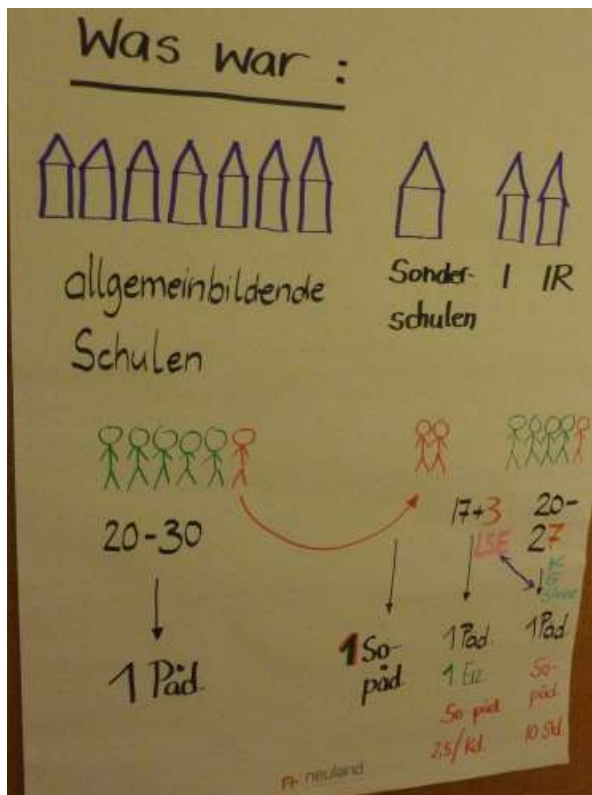 Was war :
allgemeinbildende
Schulen
Sonder-
schulen
I
IR
20-30
1 Päd.
1 So-
päd.
17+3
LSE
1 Päd.
1 Erz
So päd
2,5/Kd.
20-
27
K
1 Päd.
So-
päd.
10 Std.
neuland